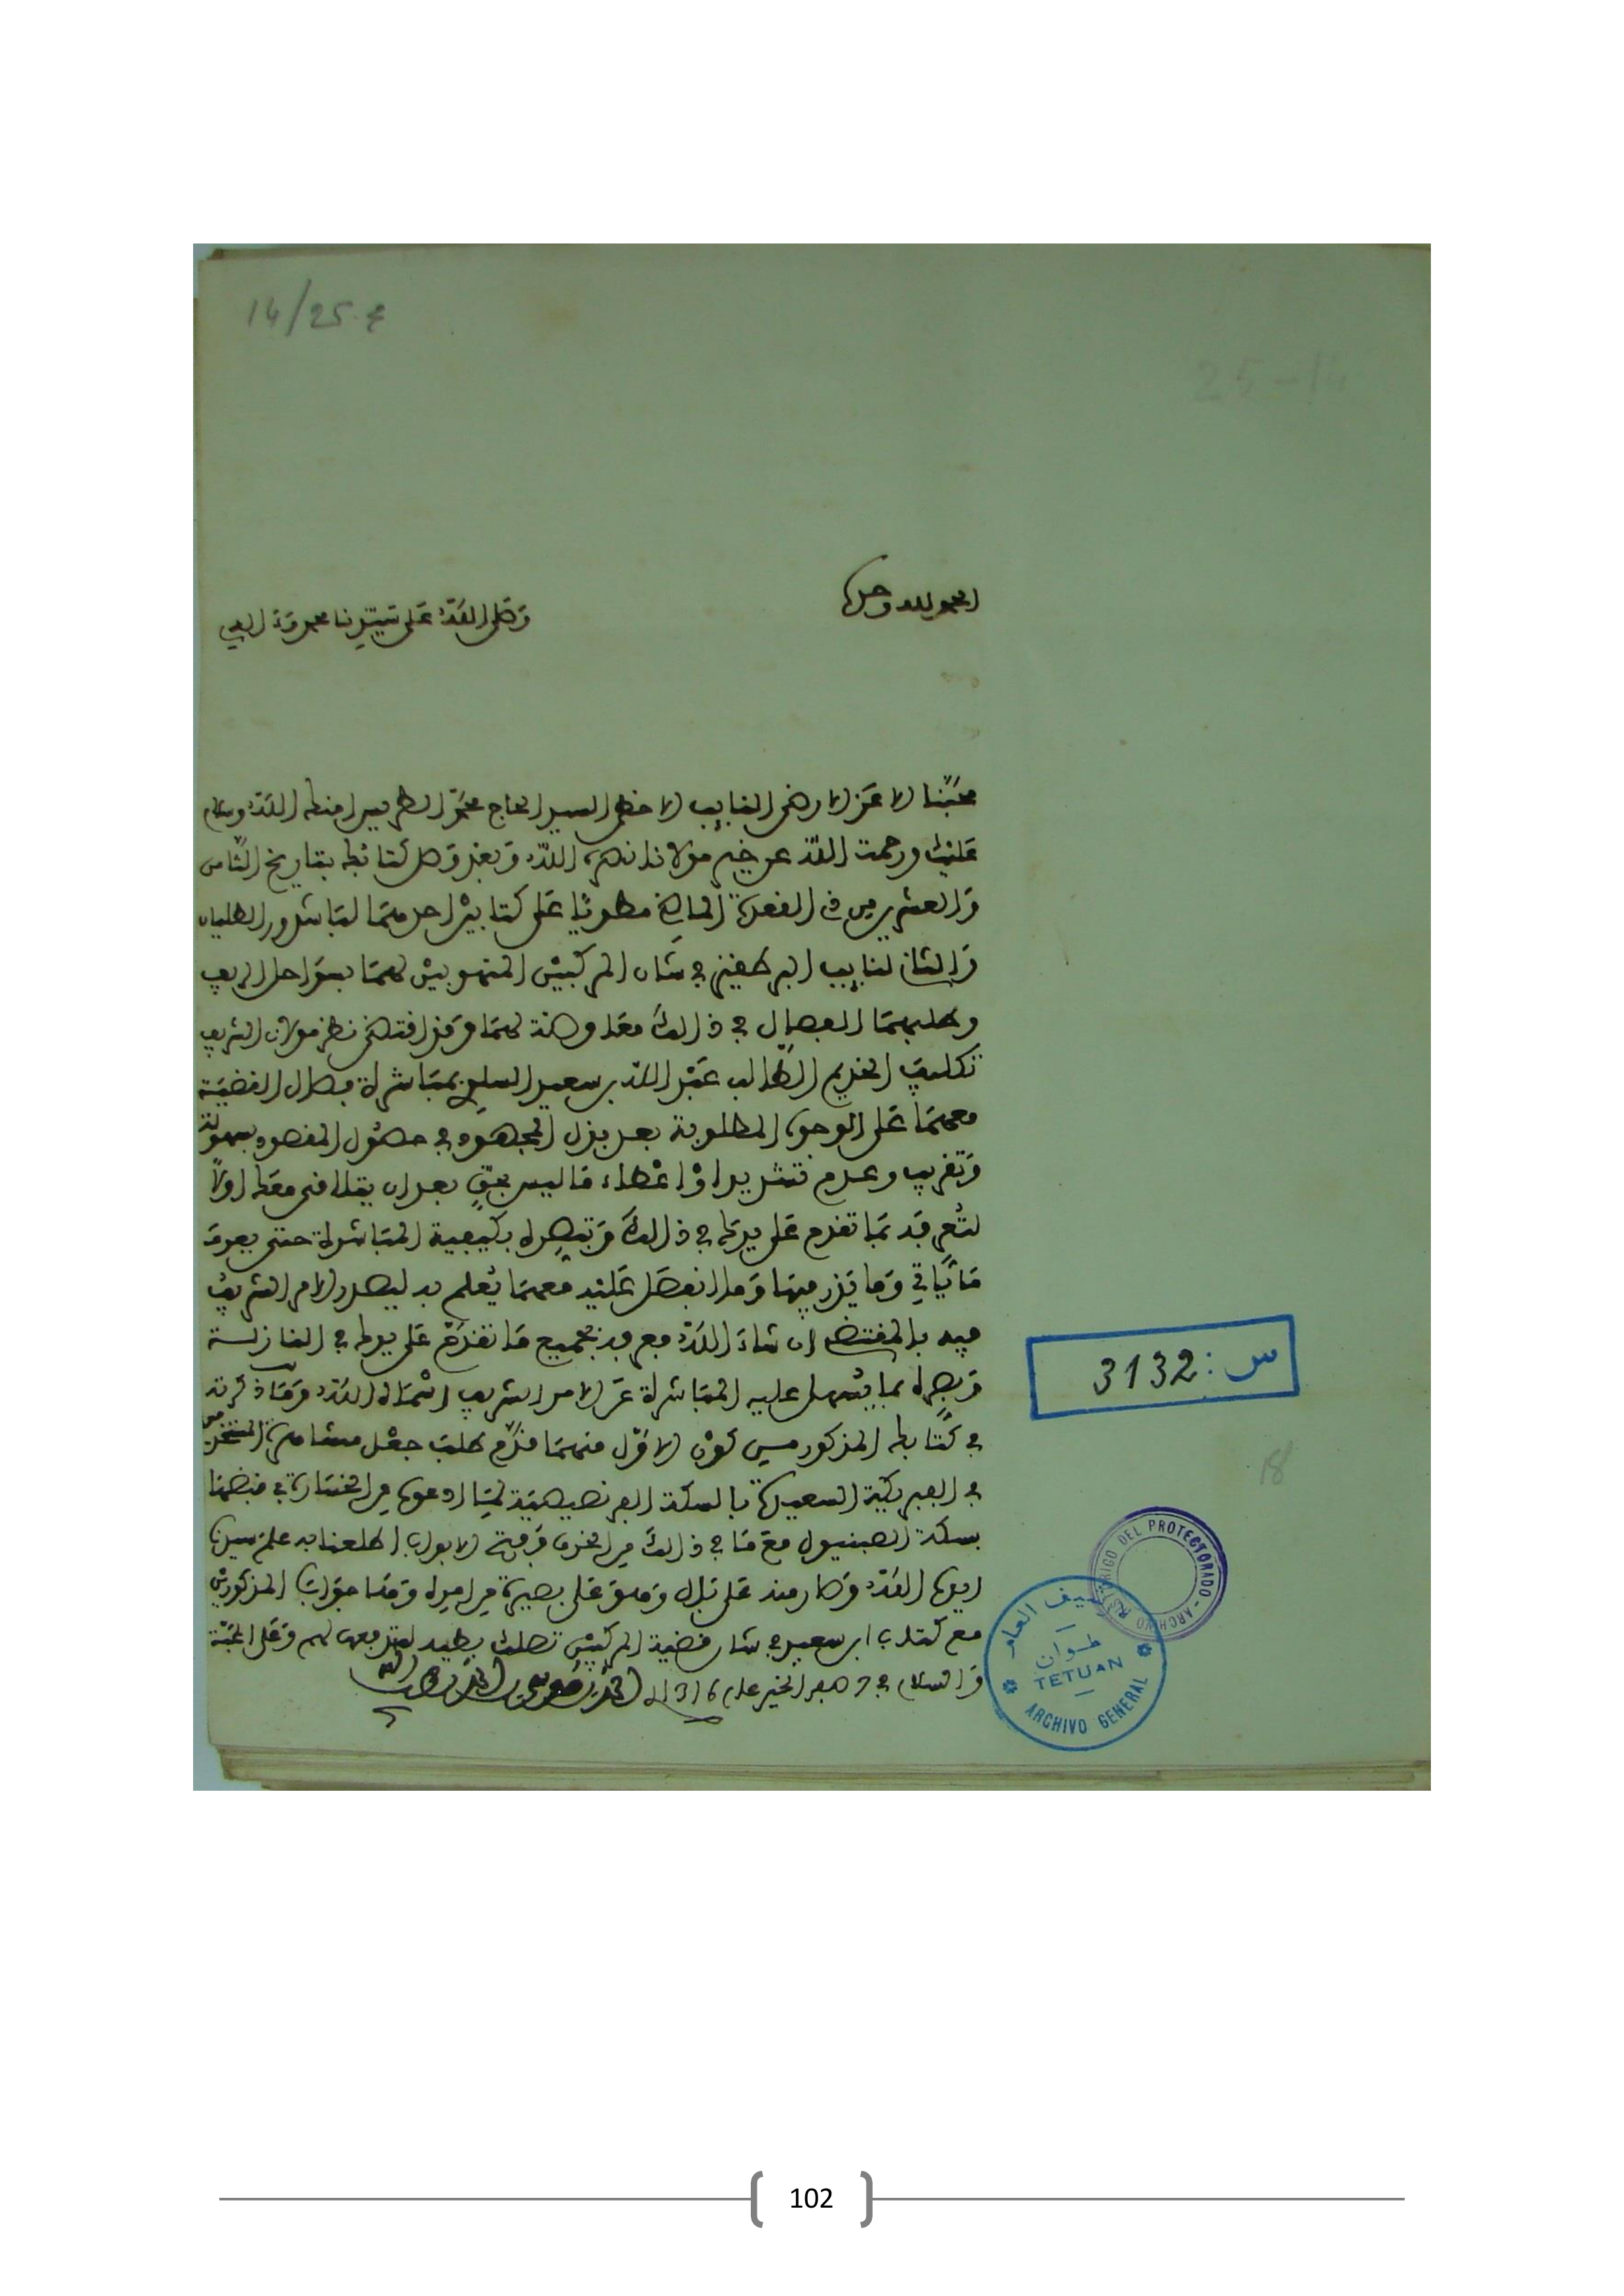 14/25.4
25-14
الحمد لله وحده
وصلى الله على سيدنا محمد وءاله
محبنا الاعز الارضى النايب الاحظى السيد الحاج محمد الطريس امنك الله وسلم
عليك ورحمت الله عن خير مولانا نصره الله وبعد وصل كتابك بتاريخ الثامن
والعشرين من ذي القعدة الماضي مطويا على كتابين احدهما لباشدور الطليان
والثاني لنايب البرطقيز في شان المركبين المنهوبين لهما بسواحل الريف
وطلبهما الفصال في ذالك معك وهنة لهما وقد اقتضى نظر مولانا الشريف
تكليف الخديم الطالب عبد الله بن سعيد السلوي بمباشرة فصال القضية
معهما على الوجوه المطلوبة بعد بذل المجهود في حصول المقصود بسهولة
وتقريب وعدم تشديد او اعطاء ما ليس بحق بعد ان يتلاقى معك اولا
لتعرفه بما تقدم على يدك في ذالك وتبصره بكيفية المباشرة حتى يعرف
ما ياتي وما يذر فيها وما انفصل عليه معهما يعلم به ليصدر الامر الشريف
فيه بالمقتضى ان شاء الله فعرفه بجميع ما تقدم على يدك في النازلة
وبصره بما يسهل عليه المباشرة عن الامر الشريف اسماه الله وما ذكرته
في كتابك المذكور من كون الاول منهما قدم طلب جعل مشاهرة المستخدمين
في الفبريكة السعيدة بالسكة الفرنصيصية لما ادعوه من الخسارة في قبضها
بسكة الصبنيول مع ما في ذالك من الخرق وفتح الابواب اطلعنا به علم سيدنا
ايده الله وصار منه على بال ومنه على بصيرة من امره وهذا جواب المذكورين
مع كتاب ابن سعيد في شان قضية المركبين تصلك طيه لتدفعها لهم وعلى المحبة
والسلام في 7 صفر الخير عام 1316 احمد بن موسى بن احمد لطف الله به
س: 3132
18
HISTORICO DEL PROTECTORADO - ARCHIVO
الارشيف العام
تطوان
TETUAN
ARCHIVO GENERAL
102